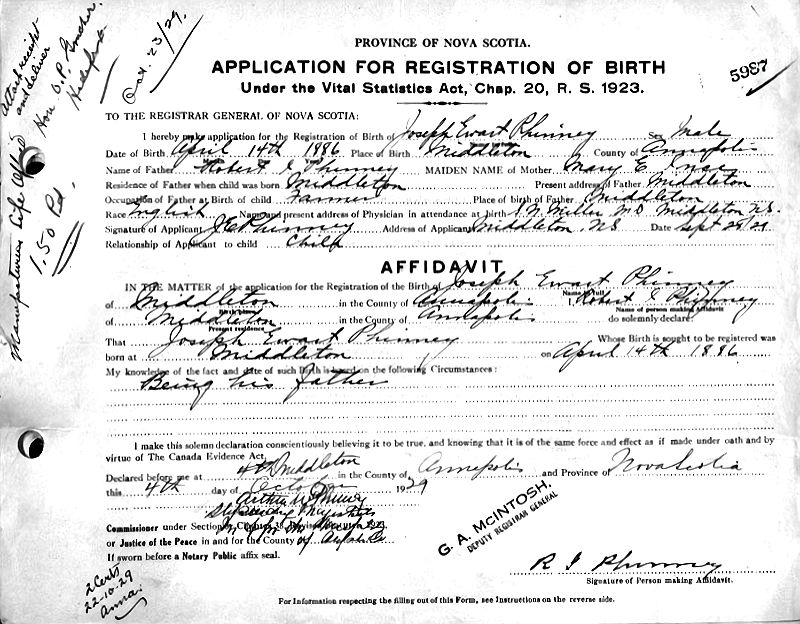 Oct. 23/29.
Attach receipt
and deliver
Hon O.P. Goucher
Halifax
Manufacturers Life Allied
1.50 Pd.
PROVINCE OF NOVA SCOTIA.
APPLICATION FOR REGISTRATION OF BIRTH
5987
Under the Vital Statistics Act, Chap. 20, R. S. 1923.
TO THE REGISTRAR GENERAL OF NOVA SCOTIA:
I hereby make application for the Registration of Birth of Joseph Ewart Phinney Sex Male
Date of Birth April 14th 1886 Place of Birth Middleton County of Annapolis
Name of Father Robert I Phinney MAIDEN NAME of Mother Mary E
Residence of Father when child was born Middleton Present address of Father Middleton
Occupation of Father at Birth of child Farmer Place of birth of Father Middleton
Race English Name and present address of Physician in attendance at birth Miller MD Middleton N.S.
Signature of Applicant J E Phinney Address of Applicant Middleton, NS Date Sept 28/29
Relationship of Applicant to child Child
AFFIDAVIT
IN THE MATTER of the application for the Registration of the Birth of Joseph Ewart Phinney
of Middleton in the County of Annapolis I, Robert I Phinney
Birth place Name in full
of Middleton in the County of Annapolis do solemnly declare:
Present residence Name of person making Affidavit
That Joseph Ewart Phinney Whose Birth is sought to be registered was
born at Middleton on April 14th 1886
My knowledge of the fact and date of such Birth is based on the following Circumstances:
Being his father
I make this solemn declaration conscientiously believing it to be true, and knowing that it is of the same force and effect as if made under oath and by
virtue of The Canada Evidence Act.
Declared before me at Middleton in the County of Annapolis and Province of Nova Scotia
this 4th day of October 1929
Arthur W Phinney
Stipendiary Magistrate
Commissioner under Section
or Justice of the Peace in and for the County of Annapolis Co.
If sworn before a Notary Public affix seal.
G. A. McINTOSH,
DEPUTY REGISTRAR GENERAL
R I Phinney
Signature of Person making Affidavit.
2 Certs
22-10-29
Anna.
For Information respecting the filling out of this Form, see Instructions on the reverse side.